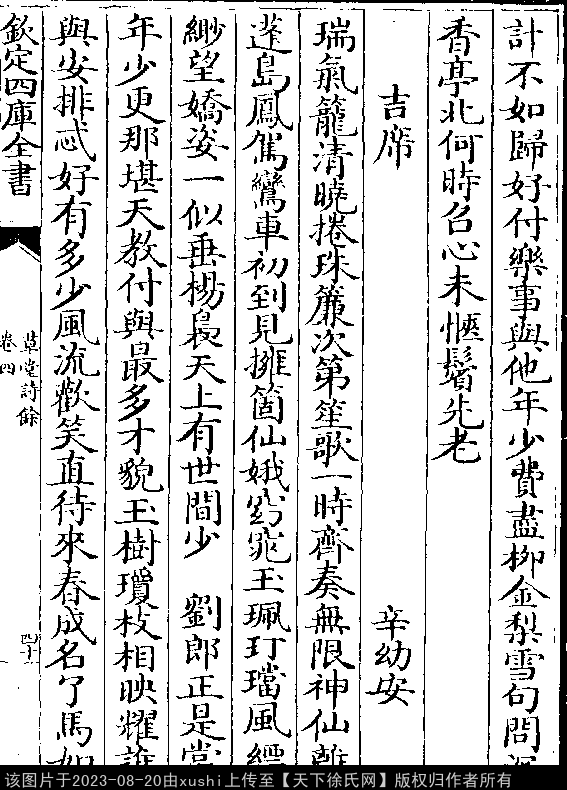 計不如歸好付樂事與他年少費盡柳金梨雪句問沉
香亭北何時召心未愜鬢先老
吉席
辛幼安
瑞氣籠清曉捲珠簾次第笙歌一時齊奏無限神仙離
蓬島鳳駕鸞車初到見擁箇仙娥窈窕玉珮玎璫風縹
緲望嬌姿一似垂楊裊天上有世間少　劉郎正是當
年少更那堪天教付與最多才貌玉樹瓊枝相映耀誰
與安排忒好有多少風流歡笑直待來春成名了馬如
欽定四庫全書
草堂詩餘
卷四
四十
该图片于2023-08-20由xushi上传至【天下徐氏网】版权归作者所有